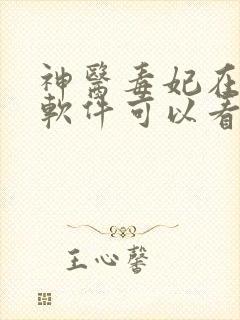 神醫毒妃在
軟件可以看
王心馨